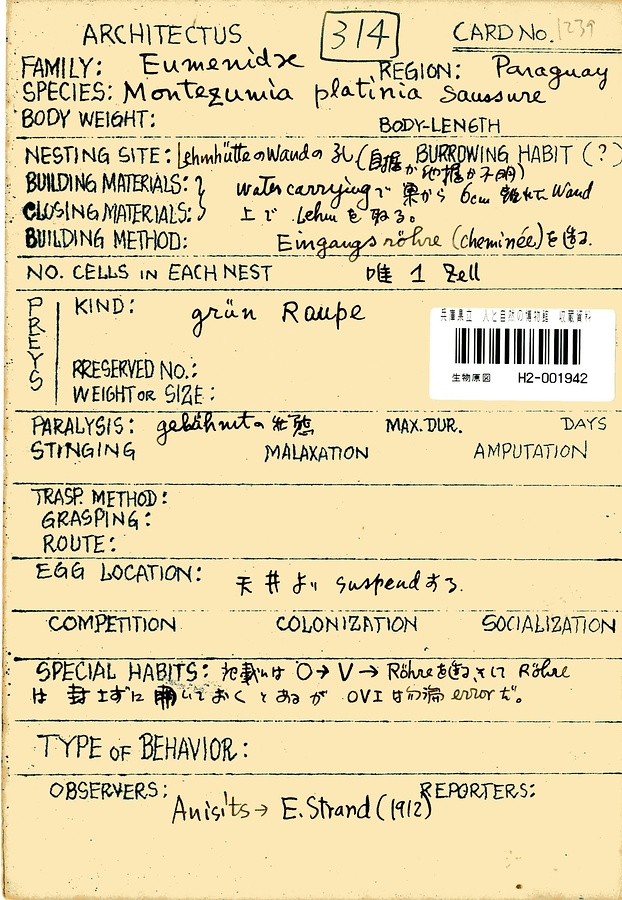 ARCHITECTUS 314 CARD No. 1239
FAMILY: Eumenidæ REGION: Paraguay
SPECIES: Montezumia platinia Saussure
BODY WEIGHT: BODY-LENGTH
NESTING SITE: Lehmhütteのwandの孔(自掘か他掘か不明) BURROWING HABIT (?)
BUILDING MATERIALS: } water carryingで 巣から 6cm 離れてwand
CLOSING MATERIALS: } 上で Lehmを取る。
BUILDING METHOD: Eingangsröhre (cheminée)を造る.
NO. CELLS IN EACH NEST 唯 1 Zell
PREYS
KIND: grün Raupe
兵庫県立 人と自然の博物館 収蔵資料
生物原図 H2-001942
RRESERVED NO.:
WEIGHT OR SIZE:
PARALYSIS: gelähmtの状態 MAX. DUR. DAYS
STINGING MALAXATION AMPUTATION
TRASP. METHOD:
GRASPING:
ROUTE:
EGG LOCATION: 天井より suspendする.
COMPETITION COLONIZATION SOCIALIZATION
SPECIAL HABITS: 記載には O→V→Röhreを造る,そして Röhre
は 封せずに開いておく とあるが OVIは勿論 errorだ。
TYPE OF BEHAVIOR:
OBSERVERS: REPORTERS:
Anisits→ E. Strand (1912)